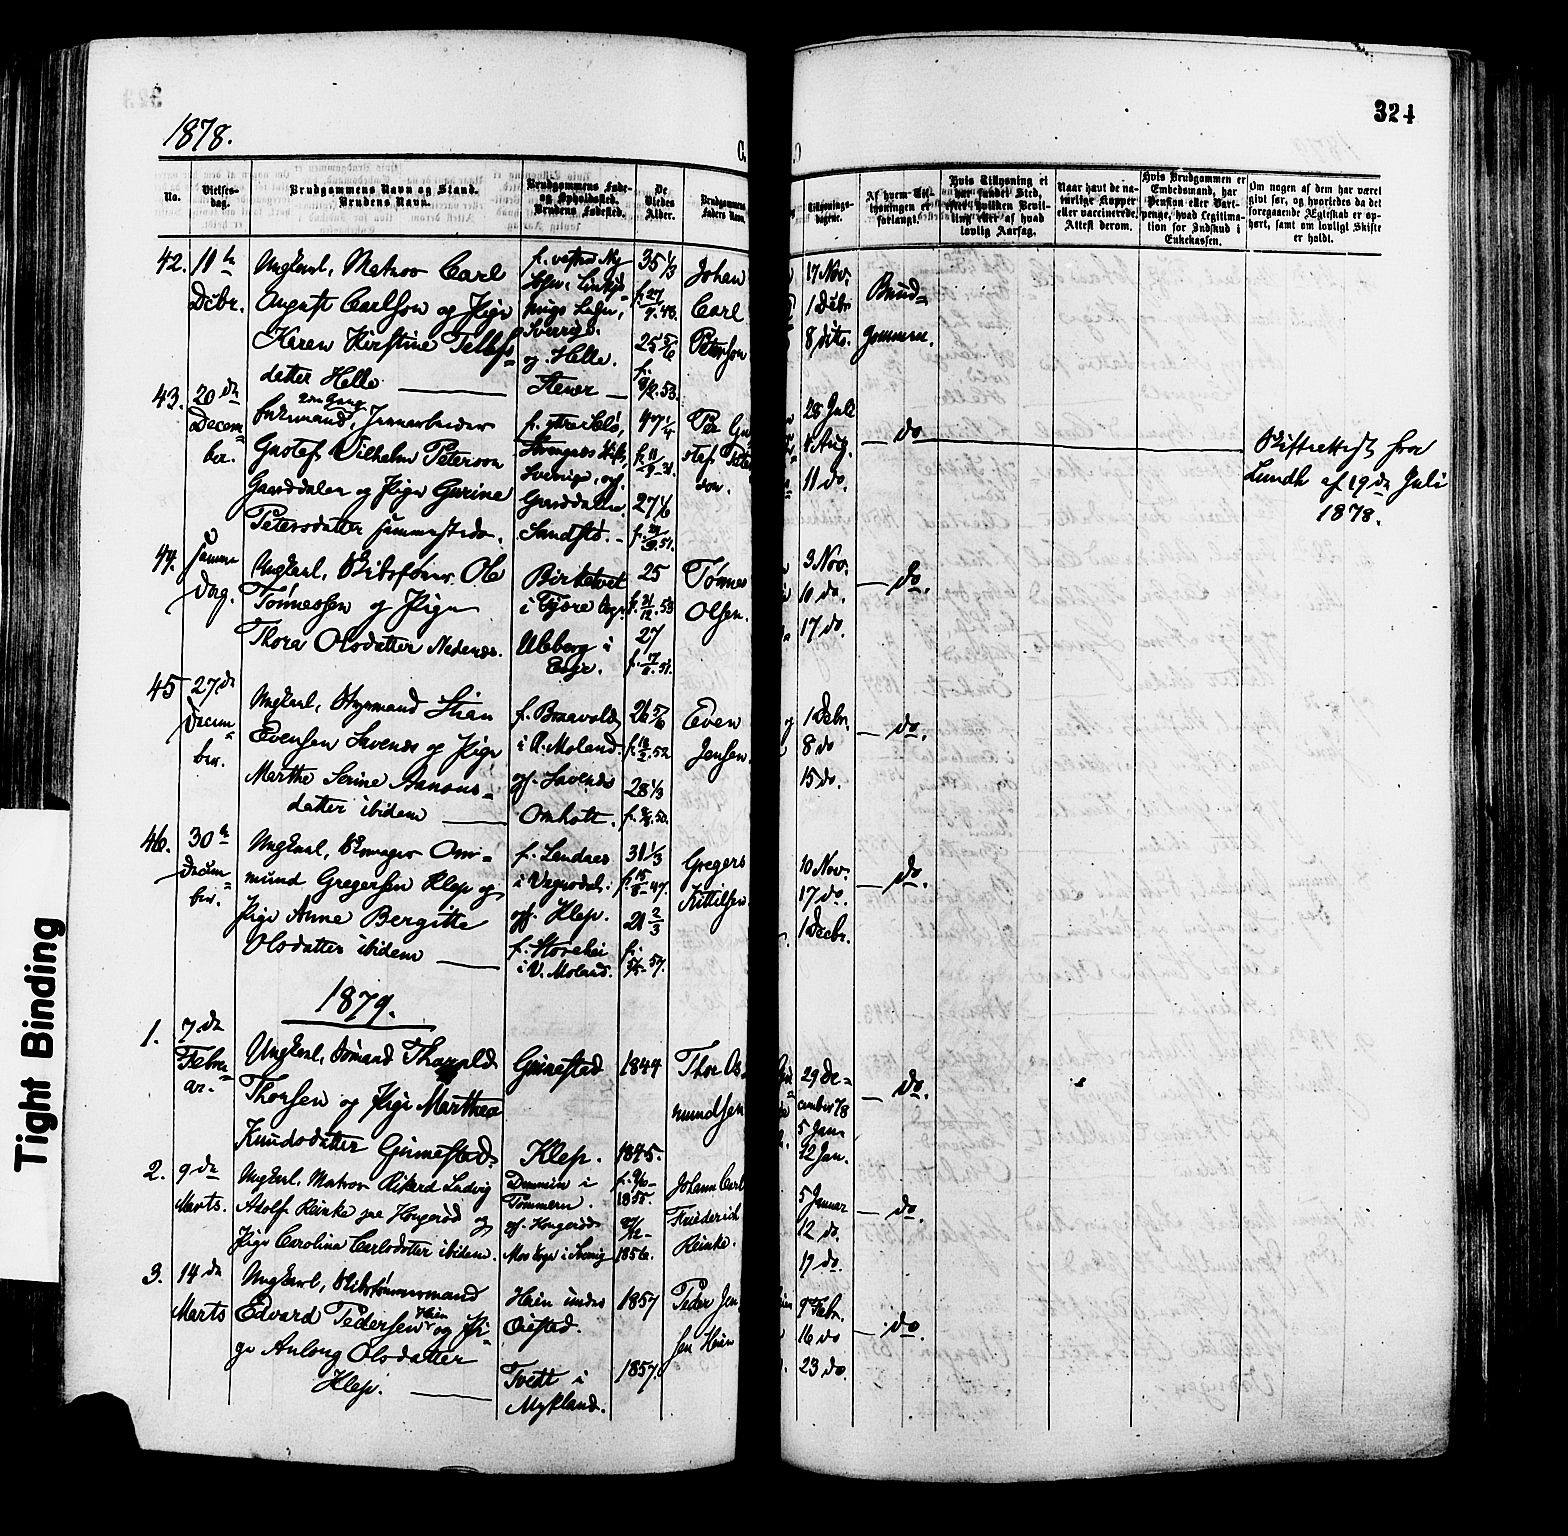 324
1878.
No.
Vielses-
dag.
Brudgommens Navn og Stand.
Brudens Navn.
Brudgommens Føde-
og Opholdssted.
Brudens Fødested.
De
Viedes
Alder.
Brudgommens
Faders Navn.
Tillysnings-
dagene.
Af hvem Til-
lysningen er
forlangt.
Hvis Tillysning ei
har fundet Sted,
efter hvilken Bevil-
ling eller af hvad
lovlig Aarsag.
Naar havt de na-
turlige Kopper
eller vaccinerede,
Attest derom.
Hvis Brudgommen er
Embedsmand, har
Pension eller Vart-
penge, hvad Legitima-
tion for Indskud i
Enkekassen.
Om nogen af dem har været
givt før, og hvorledes da det
foregaaende Ægteskab er op-
hørt, samt om lovligt Skifte
er holdt.
42. 11te
Debr.
Ungkarl, Matros Carl
August Carlsson og Pige
Karen Kirstine Tellefs-
datter Helle
og Helle.
35 1/3
25 5/6
Johan
Carl
Peterson
17 Nov.
1 Debr
8 dito.
Brud-
gommen.
43. 20de
Decem-
ber.
2den Gang
Enkemand, Jernarbeider
Gustaf Vilhelm Peterson
Gaarddalen og Pige Gurine
Petersdatter sammesteds.
f. ytre Selø,
Sverige, of.
Gaarddalen
47 1/4
27 1/6
Per Gu
staf Pete
son.
28 Juli
4 Aug.
11 do.
do
Skifteattest fra
Lundh af 19de Juli
1878.
44. samme
Dag.
Ungkarl, Skibsfører Ole
Tønnessen og Pige
Thora Olsdatter Nedenæs.
Birketvet
i Fjære Sogn
Aleborg i
25
27
Tønnes
Olsen.
3 Nov.
10 do.
17 do.
do.
45 27de
Decem-
ber.
Ungkarl, Styrmand Stian
Evensen Savenæs og Pige
Marthe Serine Aanons-
datter ibidem
f. Braavold
i Ø. Moland.
of. Savenæs
Omholt.
26 5/6
28 1/3
Even
Jensen
1 Debr.
8 do
15 do.
do.
46. 30te
Decem-
ber.
Ungkarl, Skomager Om-
mund Gregersen Klep og
Pige Anne Bergitte
Olsdatter ibidem
f. Landnes
of. Klep.
f. Storehei
i V. Moland.
31 1/3
21 2/3
Gregers
Kittilsen
10 Nov.
17 do.
1 Decbr.
do.
1879.
1. 7de
Febru-
ar.
Ungkarl, Sømand Tharald
Thorsen og Pige Marthea
Knudsdatter Grimestad.
Grimestad
Klep.
1844
1845.
Thor Os-
mundsen
29 De-
cember 78
5 Jan.
12 Jan.
do.
2. 9de
Marts.
Ungkarl, Matros Rikard Ludvig
Adolf Reinke paa Hougerød og
Pige Carolina Carlsdatter ibidem.
Demmin i
Pommern.
of. Hougerød
Mo Sogn i Sverig
1855.
1856.
Johann Carl
Friederich
Reinke.
5 Januar
12 do.
19 do.
do.
3. 14de
Marts
Ungkarl, Skibstømmermand
Edvard Pedersen Heien og Pi-
ge Anlong Olsdatter
Klep.
Heien under
Øiestad.
Tvedt i
Mykland.
1857
1857.
Peder Jen-
sen Heien
9 Febr.
16 do
23 do.
do.
Tight Binding